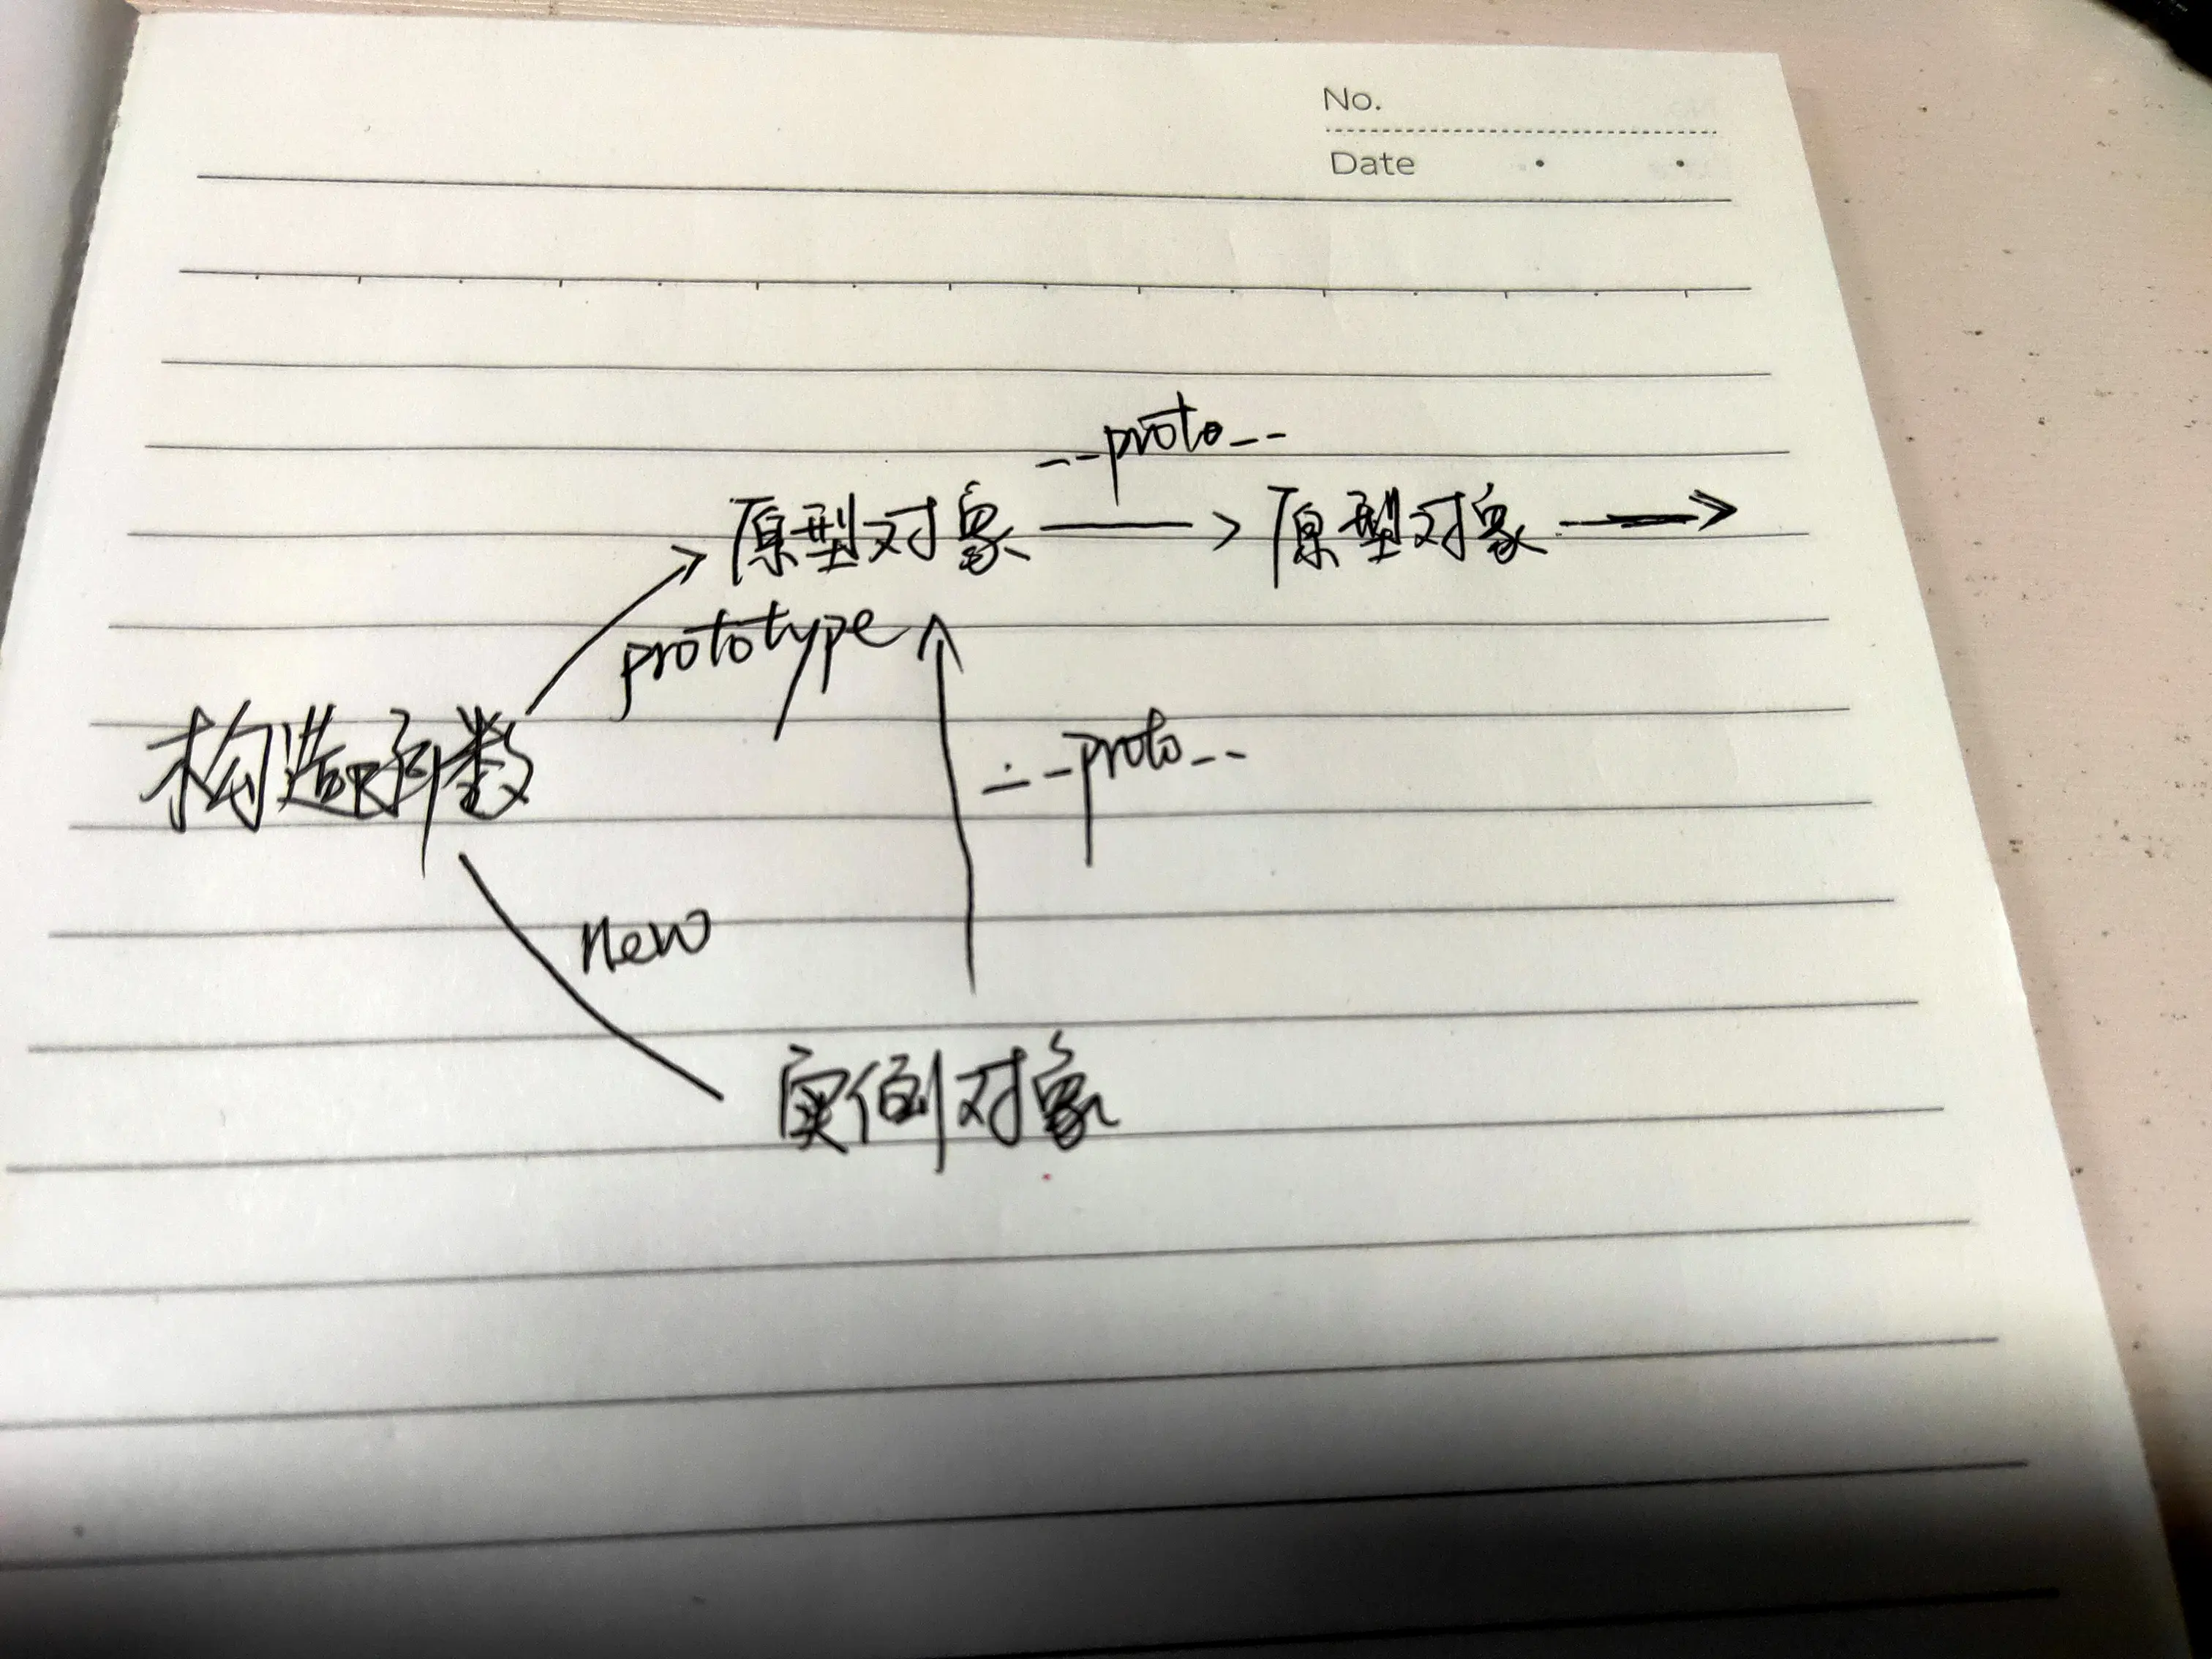 No.
Date
__proto__
原型对象 原型对象
prototype
构造函数
__proto__
new
实例对象